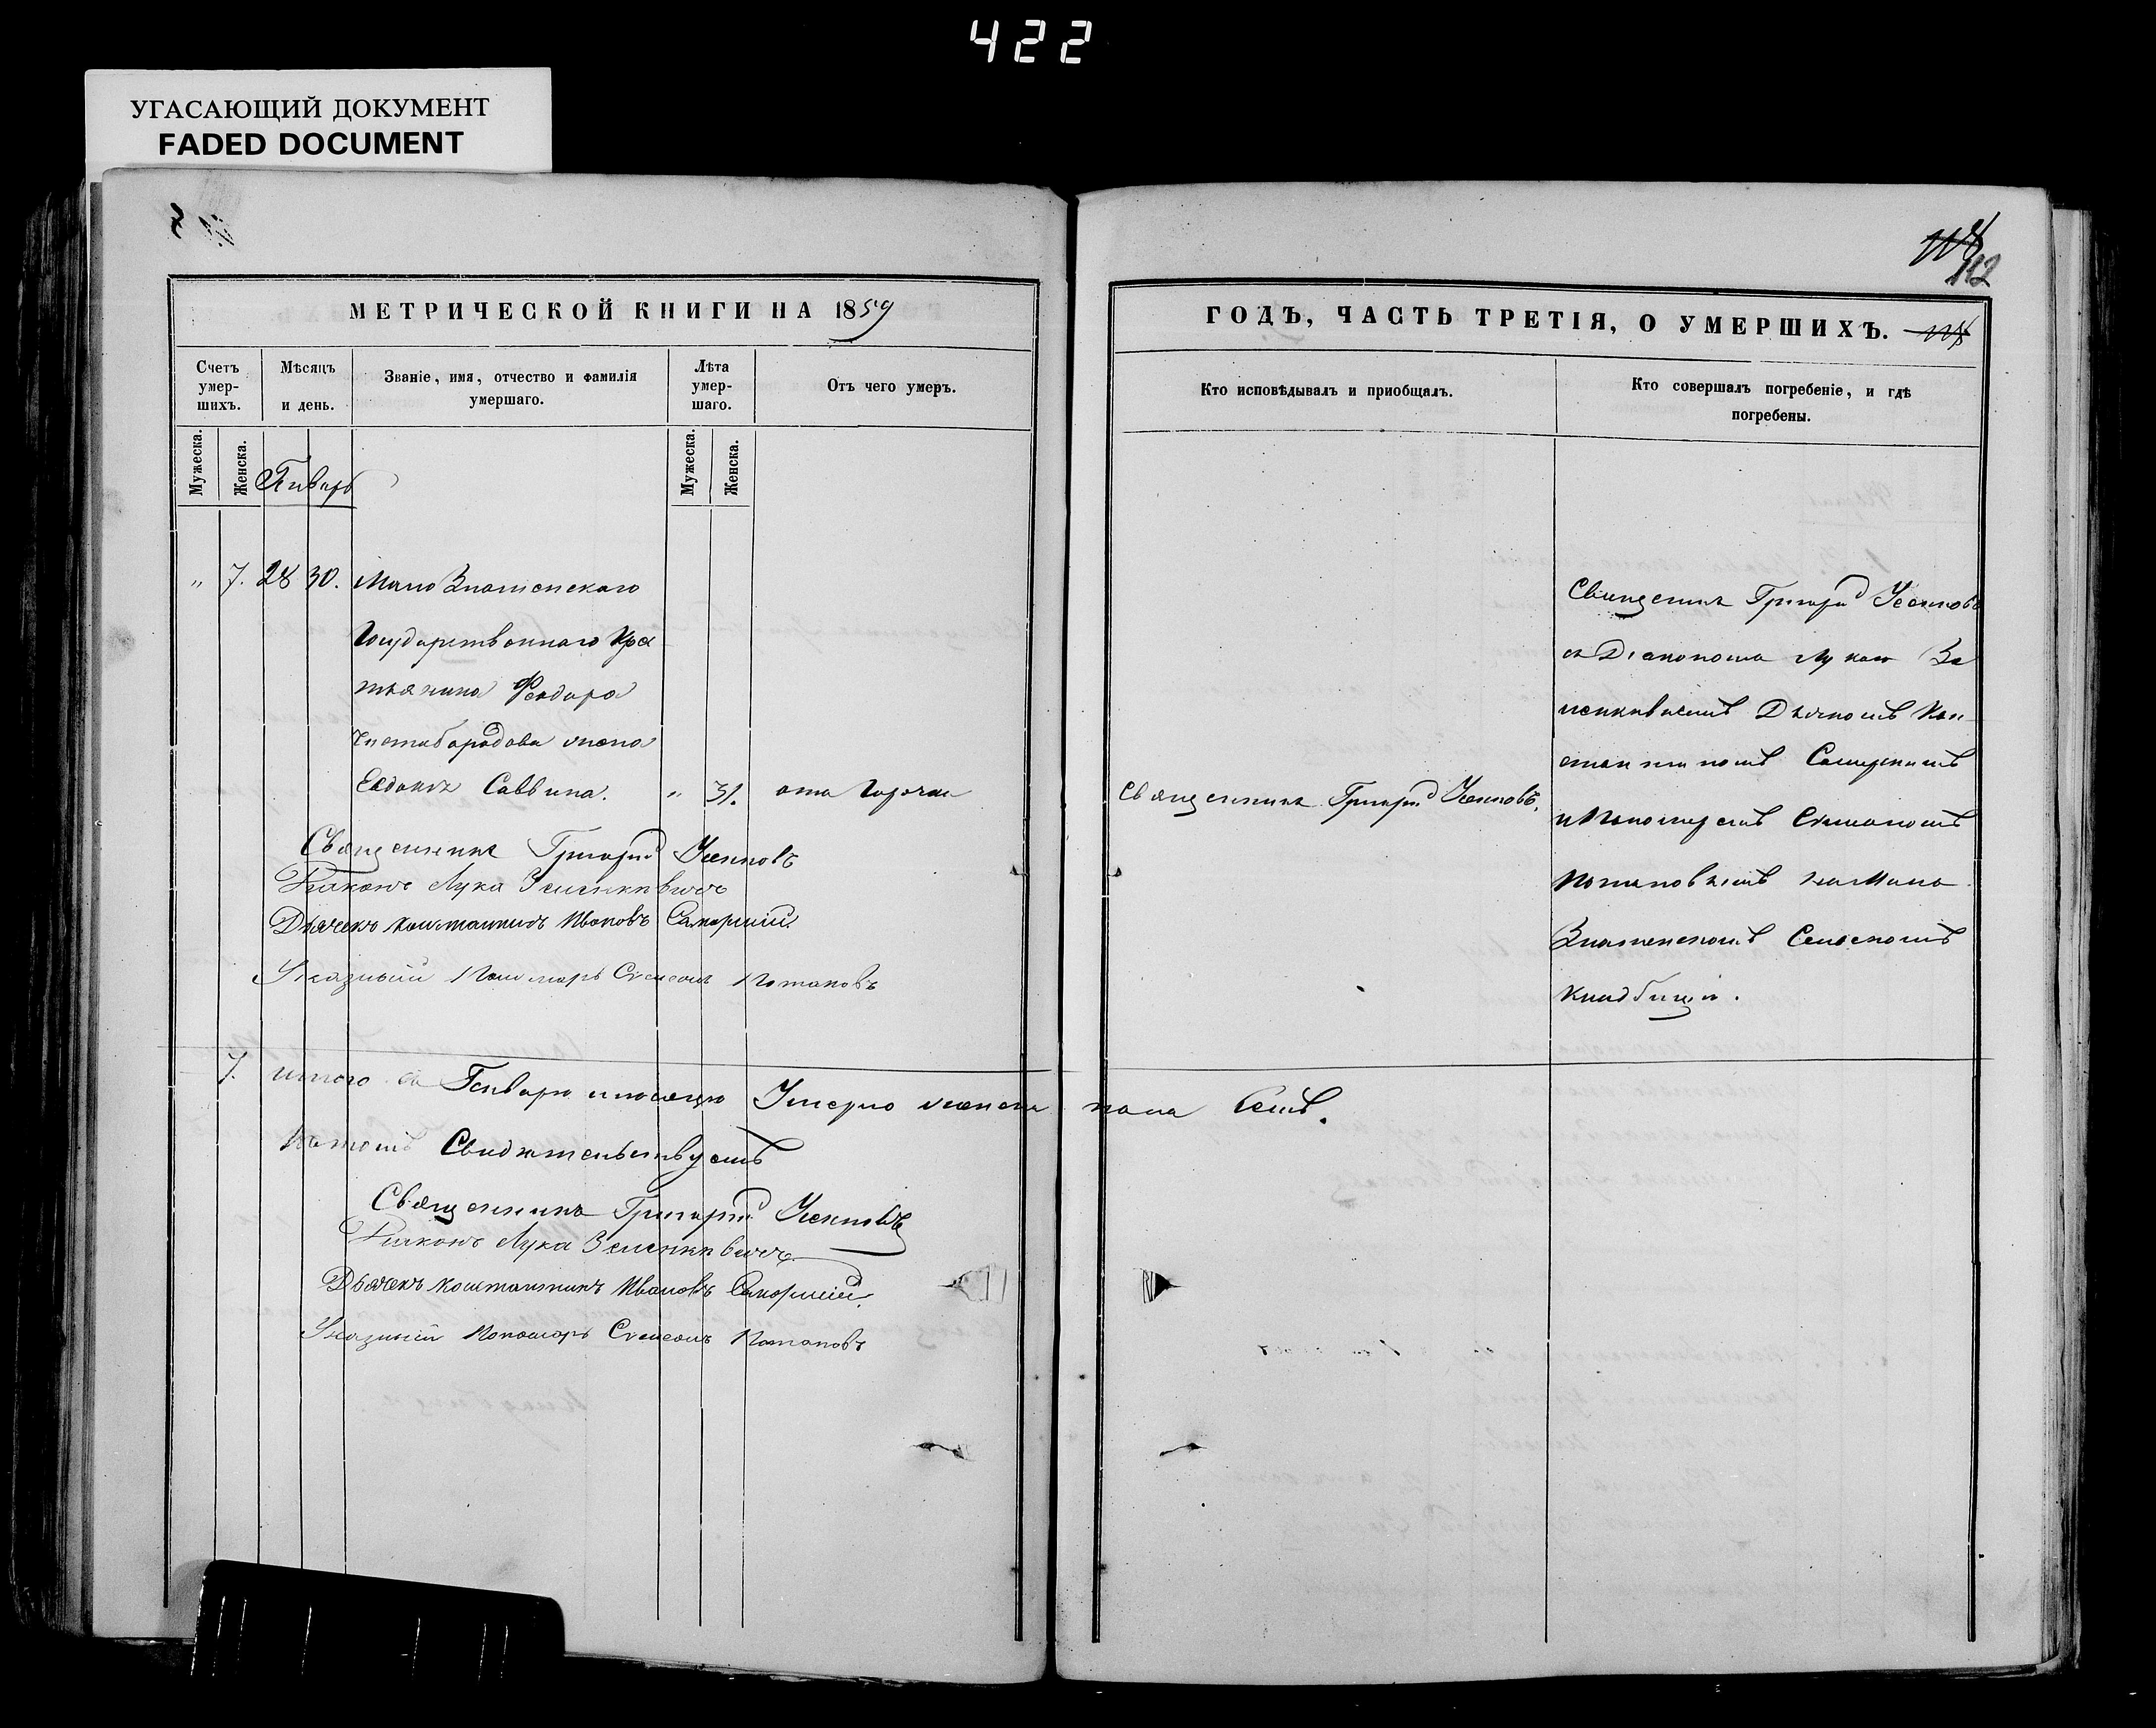 422
УГАСАЮЩИЙ ДОКУМЕНТ
FADED DOCUMENT
МЕТРИЧЕСКОЙ КНИГИ НА 1859
Счетъ умер-шихъ.
Мѣсяцъ и день.
Званіе, имя, отчество и фамилія умершаго.
Лѣта умер-шаго.
Отъ чего умеръ.
Мужеска.
Женска.
Январь
Мужеска.
Женска.
„ 7. 28 30. Мало Знаменскаго
Государственнаго Кре
стьянина Феодора
Чистобородова жена
Евдокія Саввина. „ 31. отъ Горячки
Священникъ Григорій
Діаконъ Лука
Дьячекъ Константинъ Ивановъ
Указный Пономарь Симеонъ Потаповъ
7. итого въ Генваре месяце Умерло женска пола Семь.
въ томъ Свидетельствуемъ
Священникъ Григорій
Діаконъ Лука
Дьячекъ Константинъ Ивановъ
Указный Пономарь Симеонъ Потаповъ
112
ГОДЪ, ЧАСТЬ ТРЕТІЯ, О УМЕРШИХЪ.
Кто исповѣдывалъ и пріобщалъ.
Кто совершалъ погребеніе, и гдѣ погребены.
Священникъ Григорій
Священникъ Григорій
съ Діакономъ Лукою
Дьячкомъ Кон
стантиномъ
и Пономаремъ Симеономъ
Потаповымъ на Мало
Знаменскомъ Сельскомъ
Кладбищѣ.